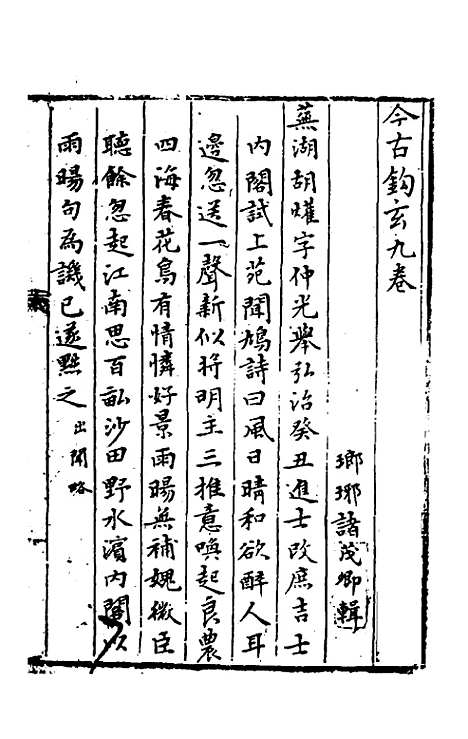 今古鈎玄九卷
瑯琊諸茂卿輯
蕪湖胡爟字仲光舉弘治癸丑進士改庶吉士
內閣試上苑聞鳩詩曰風日晴和欲醉人耳
邊忽送一聲新似將明主三推意喚起良農
四海春花鳥有情憐好景雨暘無補媿微臣
聽餘忽起江南思百畝沙田野水濱內閣以
雨暘句為譏已遂黜之 出聞略